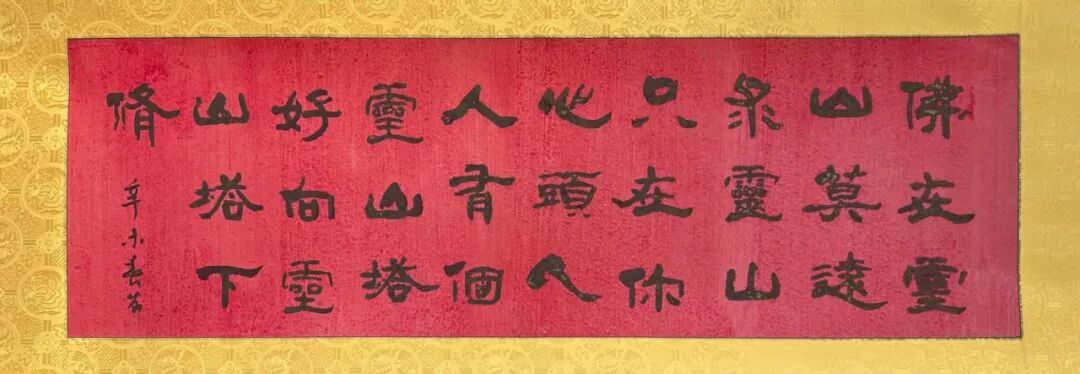 佛在靈
山莫遠
求靈山
只在你
心頭人
人有個
靈山塔
好向靈
山塔下
脩
辛未春